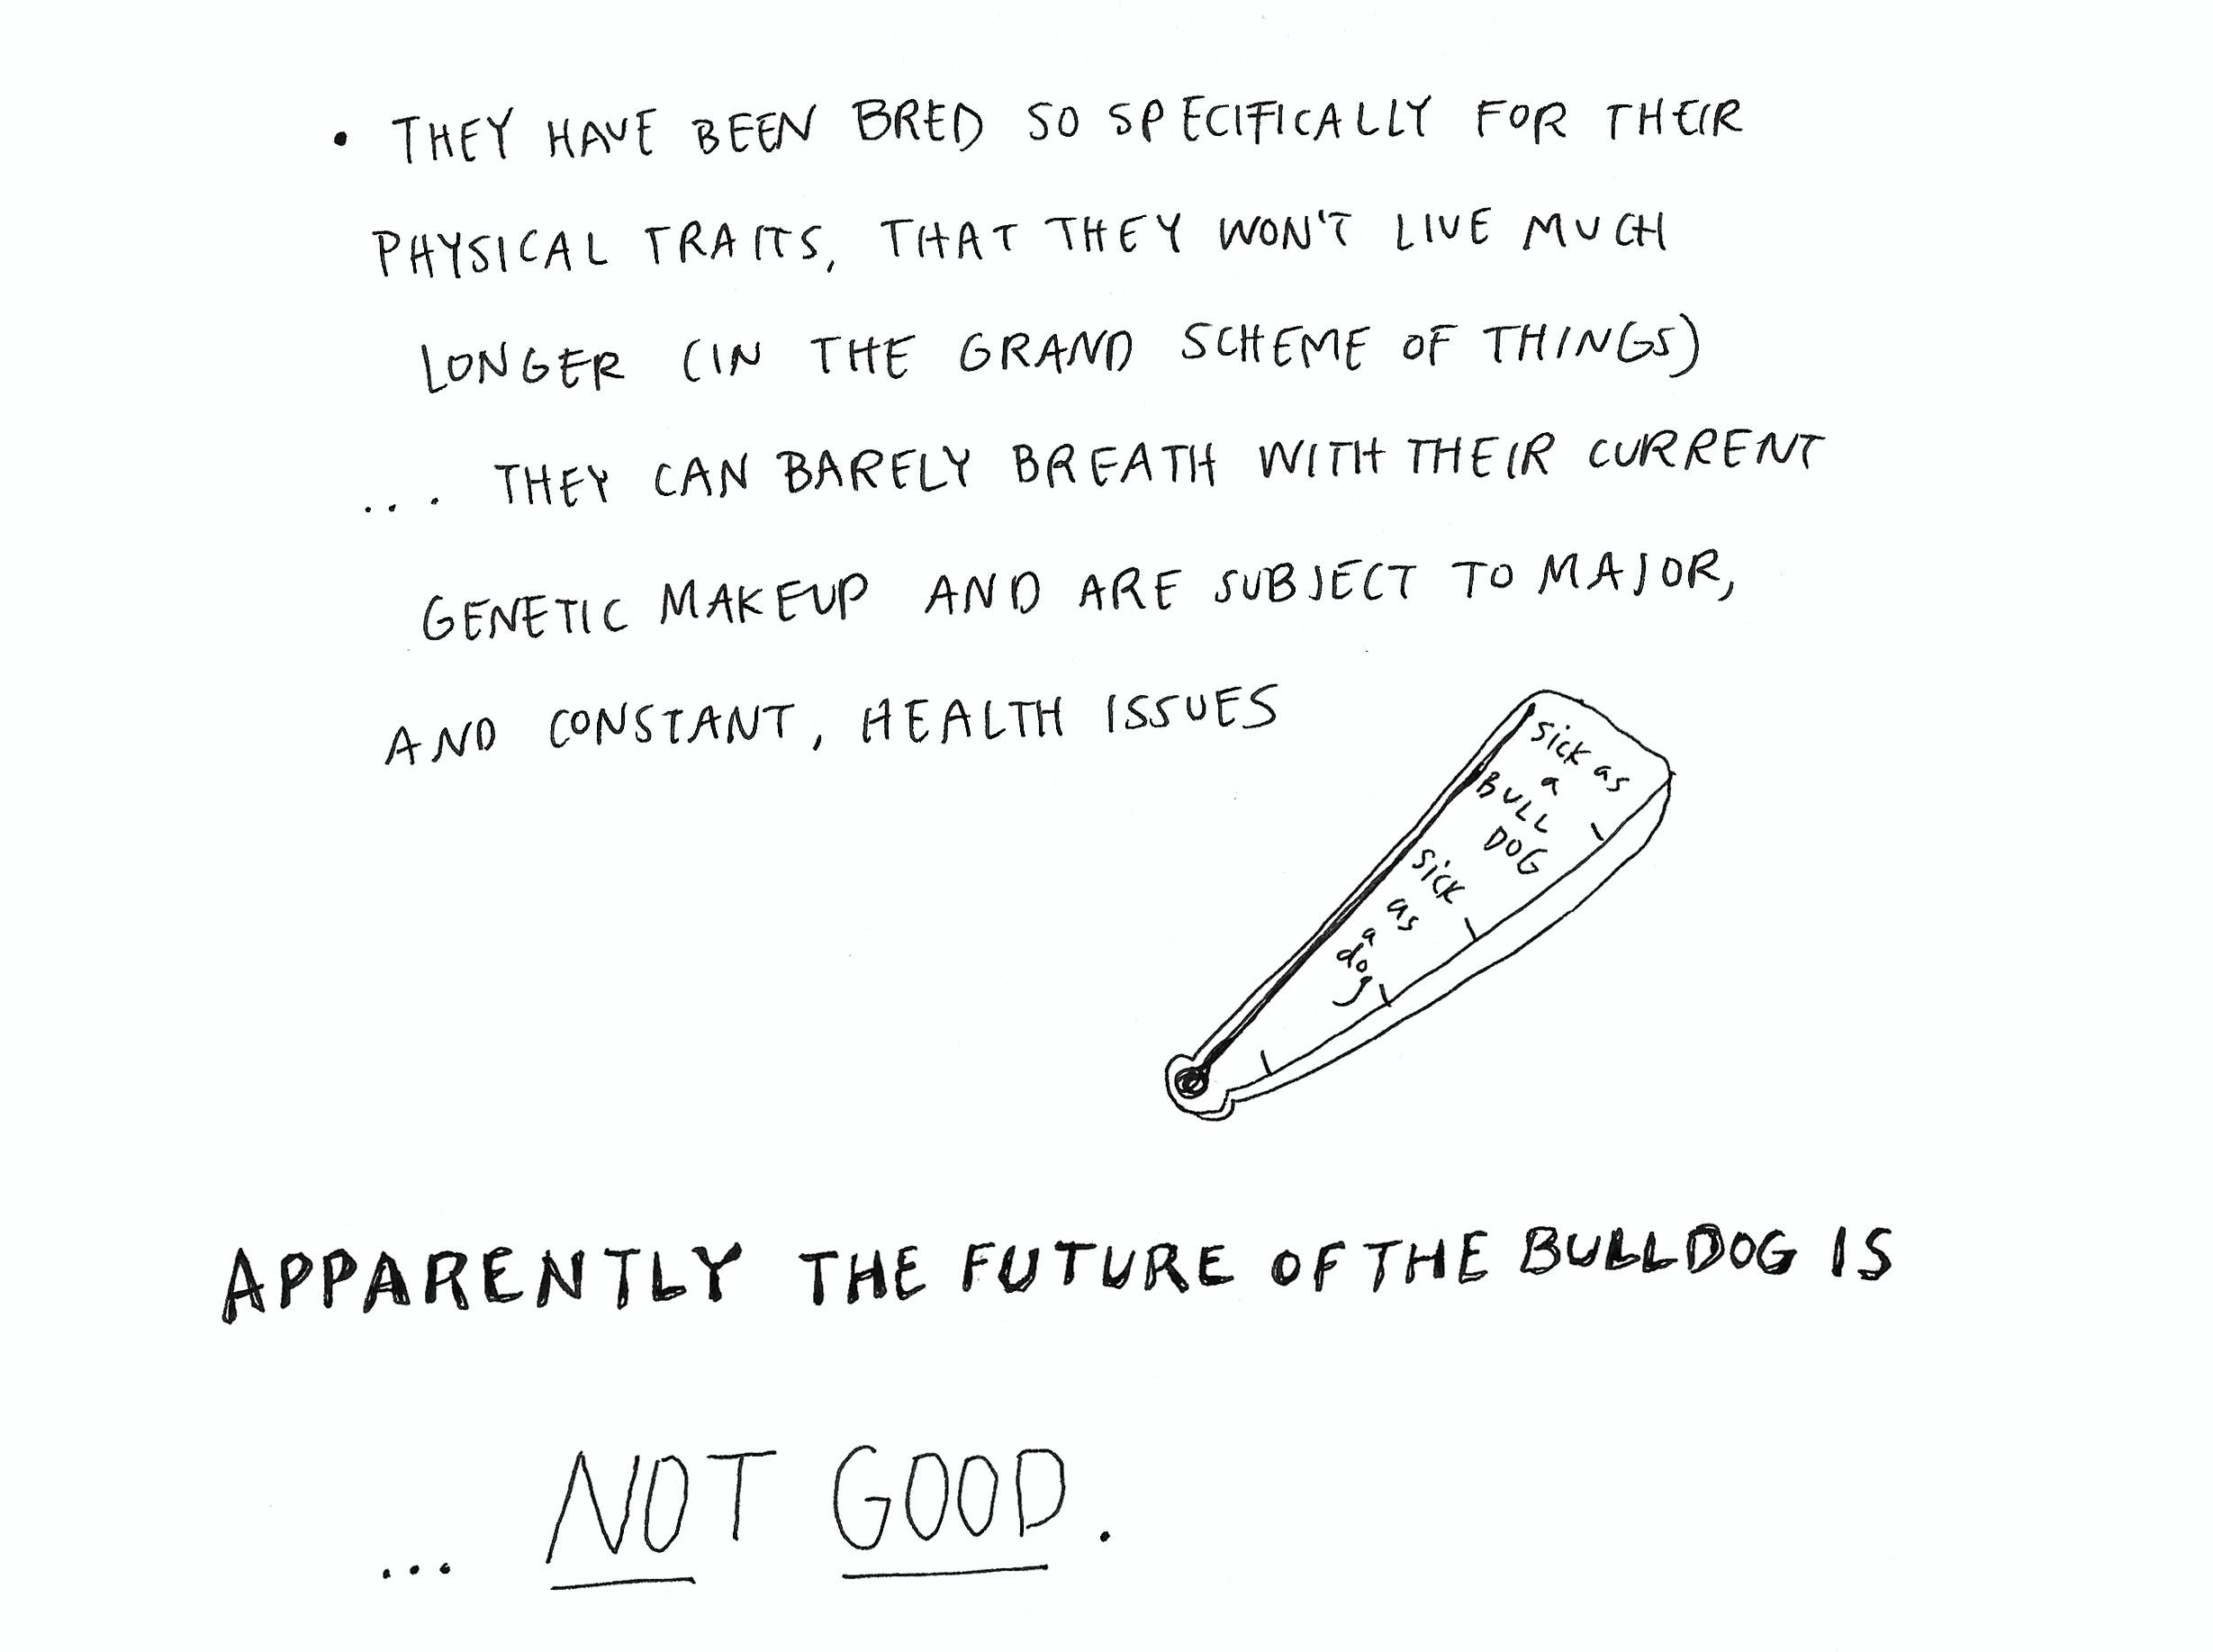 • THEY HAVE BEEN BRED SO SPECIFICALLY FOR THEIR
PHYSICAL TRAITS, THAT THEY WON'T LIVE MUCH
LONGER (IN THE GRAND SCHEME OF THINGS)
... THEY CAN BARELY BREATH WITH THEIR CURRENT
GENETIC MAKEUP AND ARE SUBJECT TO MAJOR,
AND CONSTANT, HEALTH ISSUES
sick as
a
BULL
DOG
sick
as
a
dog
APPARENTLY THE FUTURE OF THE BULLDOG IS
... NOT GOOD.